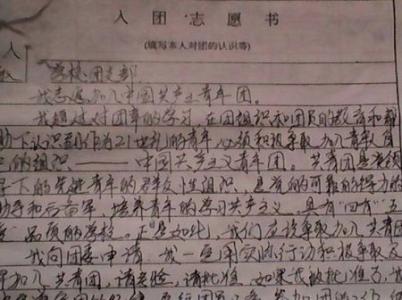 入团志愿书
(填写本人对团的认识等)
入
学校团支部
我志愿加入中国共产主义青年团。
我通过对团章的学习，在团组织和团员的教育和帮
助下认识到作为21世纪的青年，必须积极争取加入青年自
己的组织——中国共产主义青年团。共青团是党领
导下的先进青年的群众性组织，是党的可靠的得力的
助手和后备军，培养青年的学习共产主义，具有"四有"五
品质的学校。正是如此，我们应该争取加入共青团
我向团委申请：我一定用实际行动积极争取及
早加入共青团，请考验，请批准。如果我被批准了，我